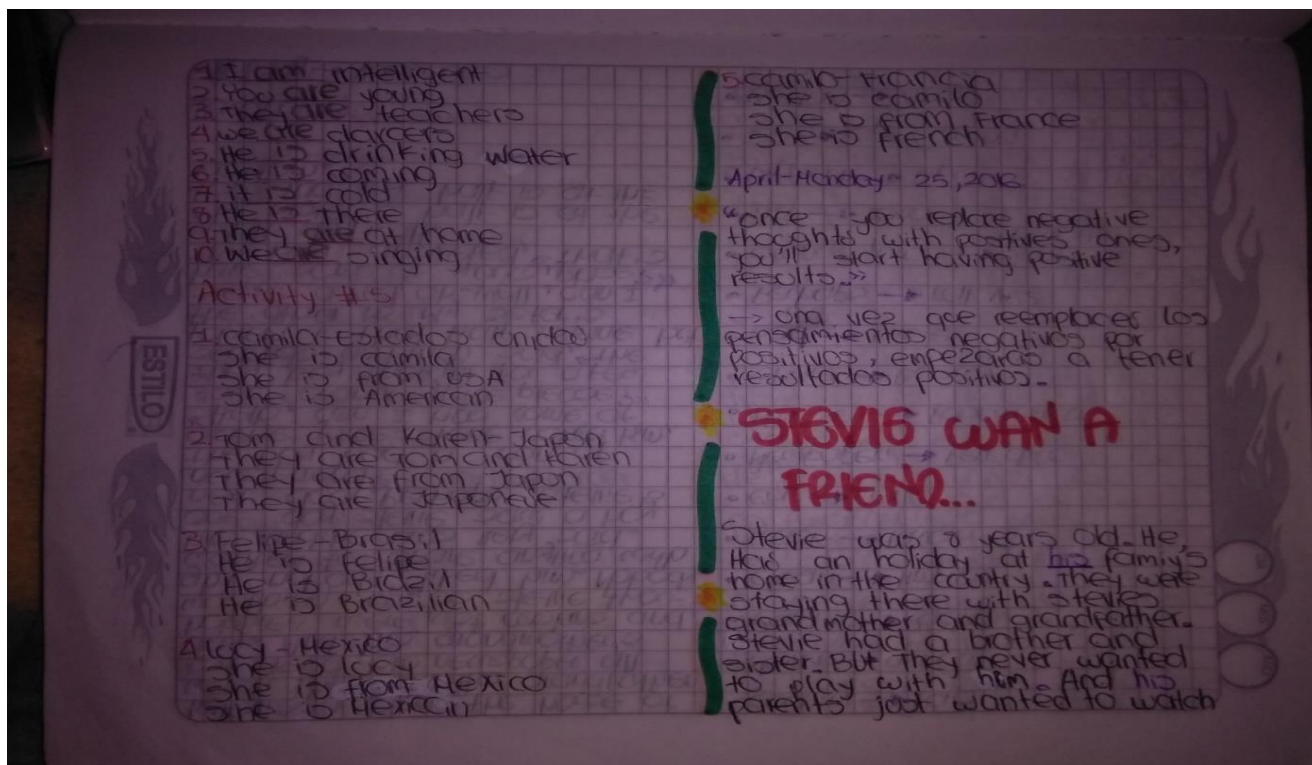 1. I am intelligent
2. You are young
3. They are teachers
4. we are darcers
5. He is drinking water
6. He is coming
7. it is cold
8. He is there
9. They are at home
10. We are singing
Activity # 5
1. camila-estados unidos
She is camila
She is from USA
She is American
2. Tom and Karen-Japon
They are Tom and Karen
They are from Japon
They are Japonese
3. Felipe-Brasil
He is Felipe
He is Brazil
He is Brazilian
4. lucy-Mexico
She is lucy
She is from Mexico
She is Mexican
ESTILO
5. camilo-Francia
- She is camilo
She is from France
- She is french
April-Monday- 25, 2016
"once you replace negative
thoughts with positives ones,
you'll start having positive
results."
→ una vez que reemplaces los
pensamientos negativos por
positivos, empezaras a tener
resultados positivos.
STEVIE WAN A
FRIEND...
Stevie was 8 years old. He,
Had an holiday at his famiy's
home in the country. They were
staying there with stevies
grandmother and grandfather.
Stevie had a brother and
sister. But They never wanted
to play with him. And his
parents just wanted to watch